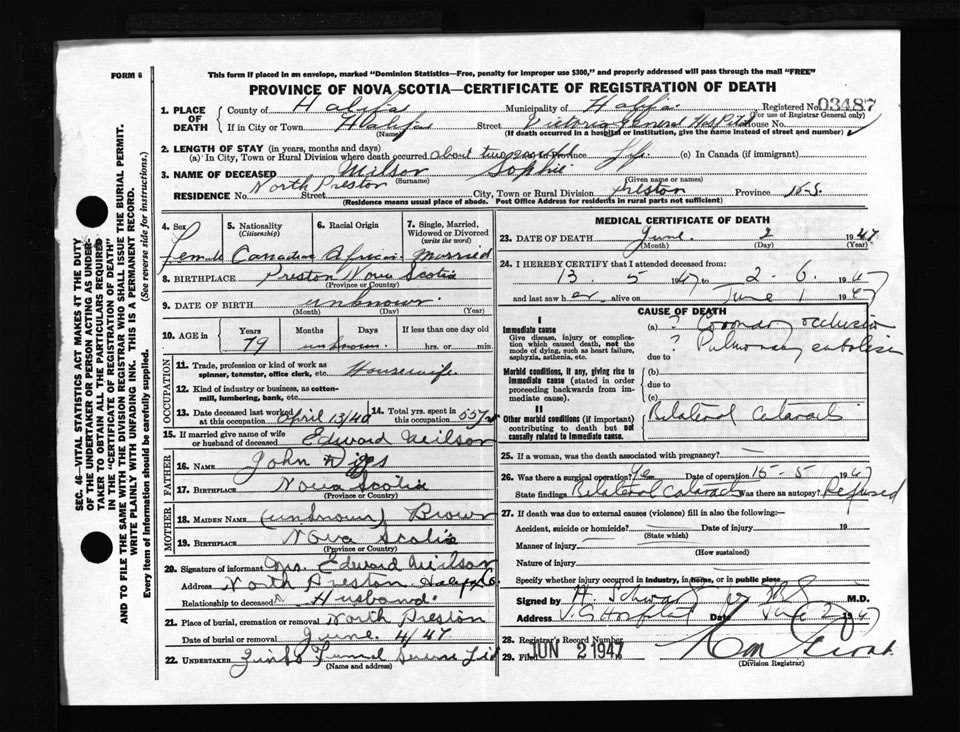 FORM 6
This form if placed in an envelope, marked "Dominion Statistics—Free, penalty for improper use $300," and properly addressed will pass through the mail "FREE"
PROVINCE OF NOVA SCOTIA—CERTIFICATE OF REGISTRATION OF DEATH
1. PLACE OF DEATH County of Halifax Municipality of Halifax Registered No. 03487
(For use of Registrar General only)
If in City or Town Halifax Street Victoria General Hospital House No.
(Name) (If death occurred in a hospital or institution, give the name instead of street and number)
2. LENGTH OF STAY (in years, months and days)
(a) In City, Town or Rural Division where death occurred about two Province Life (c) In Canada (if immigrant)
3. NAME OF DECEASED Sophie
(Surname) (Given name or names)
RESIDENCE No. North Preston Street City, Town or Rural Division Preston Province
(Residence means usual place of abode. Post Office Address for residents in rural parts not sufficient)
4. Sex 5. Nationality (Citizenship) 6. Racial Origin 7. Single, Married, Widowed or Divorced (write the word)
Female Canadian African Married
8. BIRTHPLACE Preston Nova Scotia
(Province or County)
9. DATE OF BIRTH unknown
(Month) (Day) (Year)
10. AGE in Years Months Days If less than one day
79 unknown hrs. or min.
OCCUPATION
11. Trade, profession or kind of work as spinner, teamster, office clerk, etc. Housewife
12. Kind of industry or business, as cotton-mill, lumbering, bank, etc.
13. Date deceased last worked at this occupation April 13/40 14. Total yrs. spent in this occupation 55 yrs
15. If married give name of wife or husband of deceased Edward Neilson
FATHER
16. NAME John Diggs
17. BIRTHPLACE Nova Scotia
(Province or County)
MOTHER
18. MAIDEN NAME (unknown) Brown
19. BIRTHPLACE Nova Scotia
(Province or County)
20. Signature of informant Edward Neilson
Address North Preston Halifax Co.
Relationship to deceased Husband
21. Place of burial, cremation or removal North Preston
Date of burial or removal June 4/47
22. UNDERTAKER Funeral Service Ltd
(Name and address)
MEDICAL CERTIFICATE OF DEATH
23. DATE OF DEATH June 2 1947
(Month) (Day) (Year)
24. I HEREBY CERTIFY that I attended deceased from:
13. 5 1947 to 2. 6. 1947
and last saw her alive on June 1 1947
CAUSE OF DEATH
I
Immediate cause
Give disease, injury or complication which caused death, not the mode of dying, such as heart failure, asphyxia, asthenia, etc.
(a) ? Coronary occlusion
? Pulmonary embolism
due to
Morbid conditions, if any, giving rise to immediate cause (stated in order proceeding backwards from immediate).
(b)
due to
(c)
II
Other morbid conditions (if important) contributing to death but not causally related to immediate cause.
Bilateral Cataracts
25. If a woman, was the death associated with pregnancy?
26. Was there a surgical operation? Date of operation 15-5 1947
State findings Bilateral Cataract Was there an autopsy? Refused
27. If death was due to external causes (violence) fill in also the following:—
Accident, suicide or homicide? Date of injury 19
(State which)
Manner of injury
(How sustained)
Nature of injury
Specify whether injury occurred in industry, in home, or in public place
Signed by M.D.
Address V.G. Hospital Date June 2 1947
28. Registrar's Record Number
29. Filed JUN 2 1947
(Division Registrar)
SEC. 46—VITAL STATISTICS ACT MAKES IT THE DUTY
OF THE UNDERTAKER OR PERSON ACTING AS UNDER-
TAKER TO OBTAIN ALL THE PARTICULARS REQUIRED
IN THE "CERTIFICATE OF REGISTRATION OF DEATH"
AND TO FILE THE SAME WITH THE DIVISION REGISTRAR WHO SHALL ISSUE THE BURIAL PERMIT.
WRITE PLAINLY WITH UNFADING INK. THIS IS A PERMANENT RECORD.
Every item of Information should be carefully supplied. (See reverse side for instructions.)